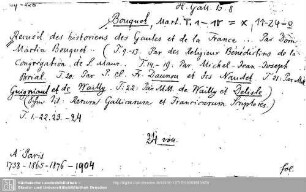 H. Gall. C. 8
Bouquet, Mart. T. 1-18 = x, 19-24 =
Recueil des historiens des Gaules et de la France .. Par Dom
Martin Bouquet — (T. 9-13. Par des Religieux Bénédictins de la
Congrégation de S. Maur. T. 14-19. Par Michel-Jean-Joseph
Brial. T. 20. Par P. Cl. F. Daunou et Jos Naudet. T. 21. Par MM.
Guigniaut et de Wailly. T. 22. Par MM. de Wailly et Delisle)
Rerum Gallicarum et Francicarum Scriptores
T. 1-22. 23-24
24 vol.
A Paris
1738-1865-1876-1904